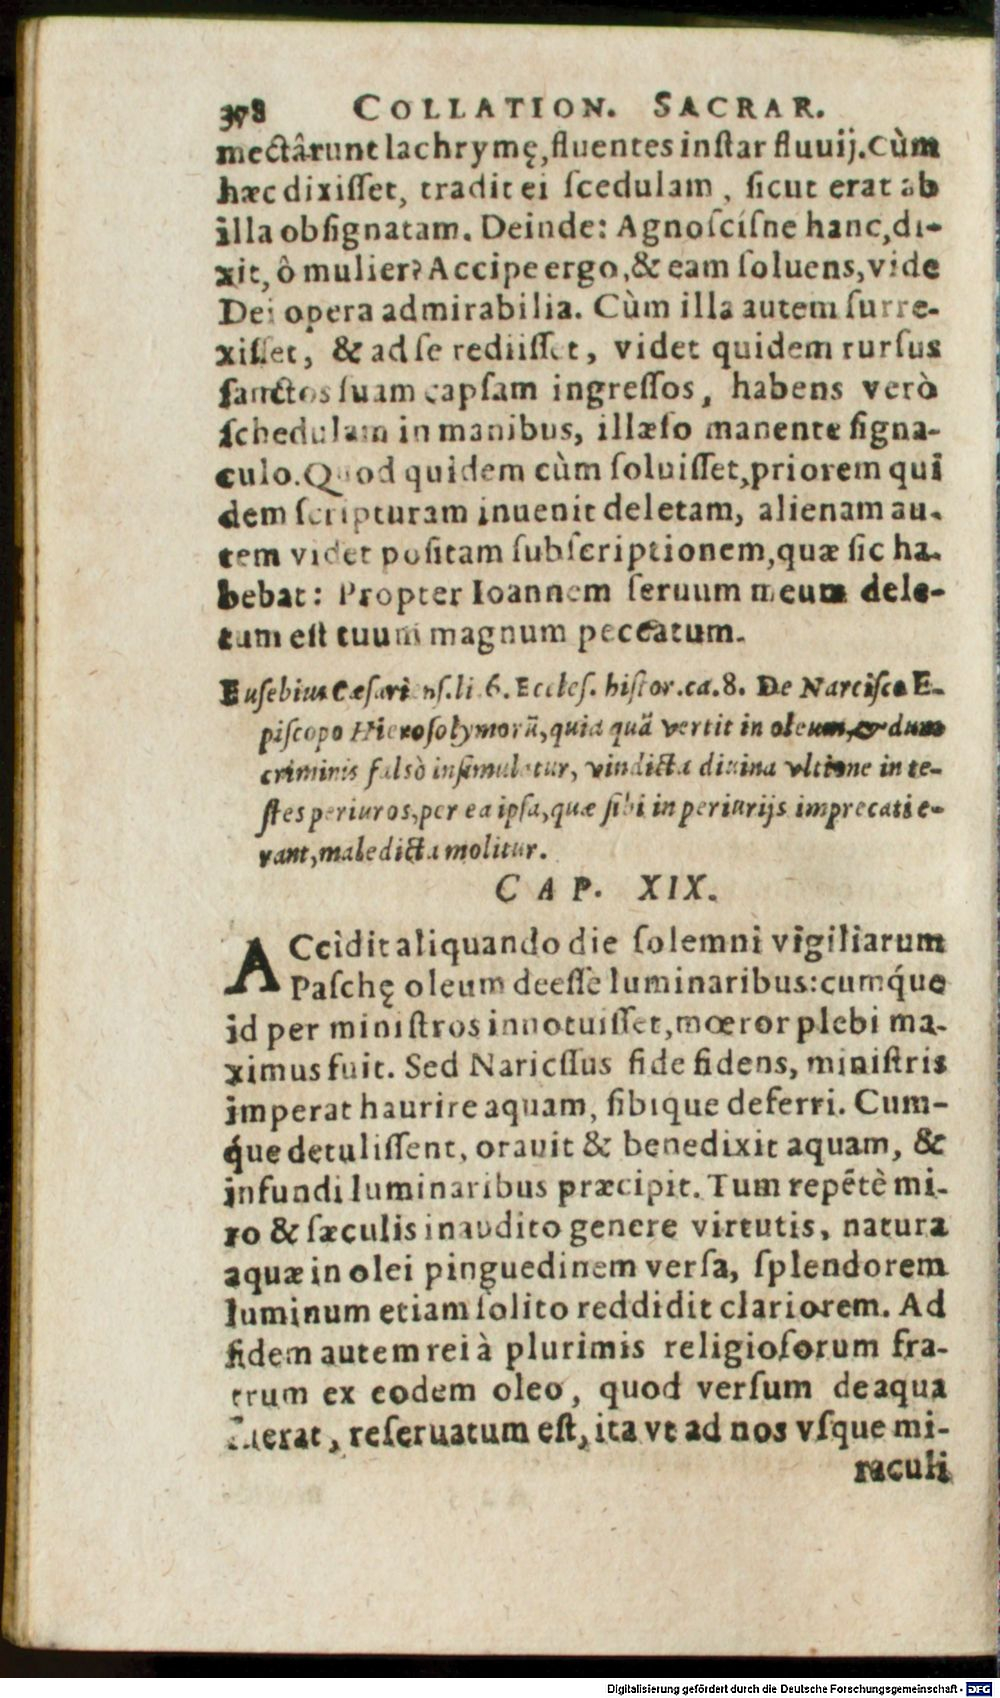 398 COLLATION. SACRAR.
mectârunt lachrymę, fluentes instar fluuij. Cùm
hæc dixisset, tradit ei scedulam, sicut erat ab
illa obsignatam. Deinde: Agnoscisne hanc, di-
xit, ô mulier? Accipe ergo, & eam soluens, vide
Dei opera admirabilia. Cùm illa autem surre-
xisset, & ad se rediisset, videt quidem rursus
sanctos suam capsam ingressos, habens verò
schedulam in manibus, illæso manente signa-
culo. Quod quidem cùm soluisset, priorem qui
dem scripturam inuenit deletam, alienam au-
tem videt positam subscriptionem, quæ sic ha-
bebat: Propter Ioannem seruum meum dele-
tum est tuum magnum peccatum.
Eusebius Cæsariens. li. 6. Eccles. histor. ca. 8. De Narcisco E-
piscopo Hierosolymorũ, quia quã vertit in oleum, & dum
criminis falsò insimulatur, vindicta diuina vltione in te-
stes periuros, per ea ipsa, quæ sibi in periurijs imprecati e-
rant, maledicta molitur.
CAP. XIX.
ACcidit aliquando die solemni vigiliarum
Paschę oleum deesse luminaribus: cumq́ue
id per ministros innotuisset, mœror plebi ma-
ximus fuit. Sed Naricssus fide fidens, ministris
imperat haurire aquam, sibique deferri. Cum-
q́ue detulissent, orauit & benedixit aquam, &
infundi luminaribus præcipit. Tum repẽtè mi-
ro & sæculis inaudito genere virtutis, natura
aquæ in olei pinguedinem versa, splendorem
luminum etiam solito reddidit clariorem. Ad
fidem autem rei à plurimis religiosorum fra-
trum ex eodem oleo, quod versum de aqua
fuerat, reseruatum est, ita vt ad nos vsque mi-
raculi
Digitalisierung gefördert durch die Deutsche Forschungsgemeinschaft - DFG